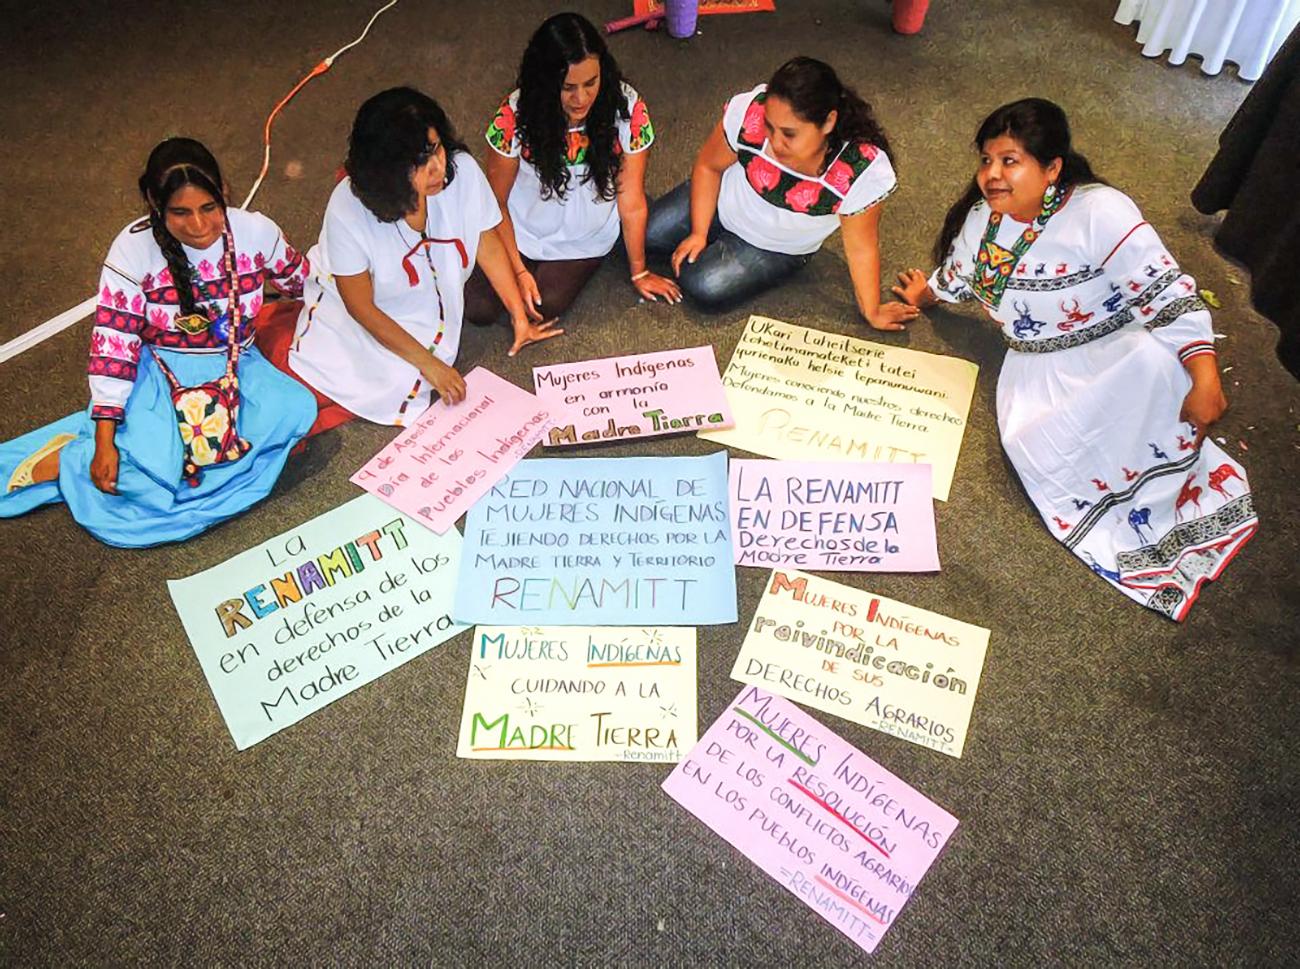 UKari Luheitserie
Lahetimamateketi tatei
yurienaka heisie tepanunuwani.
Mujeres conociendo nuestros derechos
Defendamos a la Madre Tierra
RENAMITT
Mujeres Indígenas
en armonía
con la
Madre Tierra
9 de Agosto:
Día Internacional
de los
Pueblos Indígenas
RED NACIONAL DE
MUJERES INDÍGENAS
TEJIENDO DERECHOS POR LA
MADRE TIERRA Y TERRITORIO
RENAMITT
LA RENAMITT
EN DEFENSA
Derechos de la
Madre Tierra
La
RENAMITT
en defensa de los
derechos de la
Madre Tierra
MUJERES INDÍGENAS
CUIDANDO A LA
MADRE TIERRA
-Renamitt
MUJERES INDÍGENAS
POR LA
reivindicación
DE SUS
DERECHOS AGRARIOS
-RENAMITT-
MUJERES INDÍGENAS
POR LA RESOLUCIÓN
DE LOS CONFLICTOS AGRARIOS
EN LOS PUEBLOS INDÍGENAS
=RENAMITT=